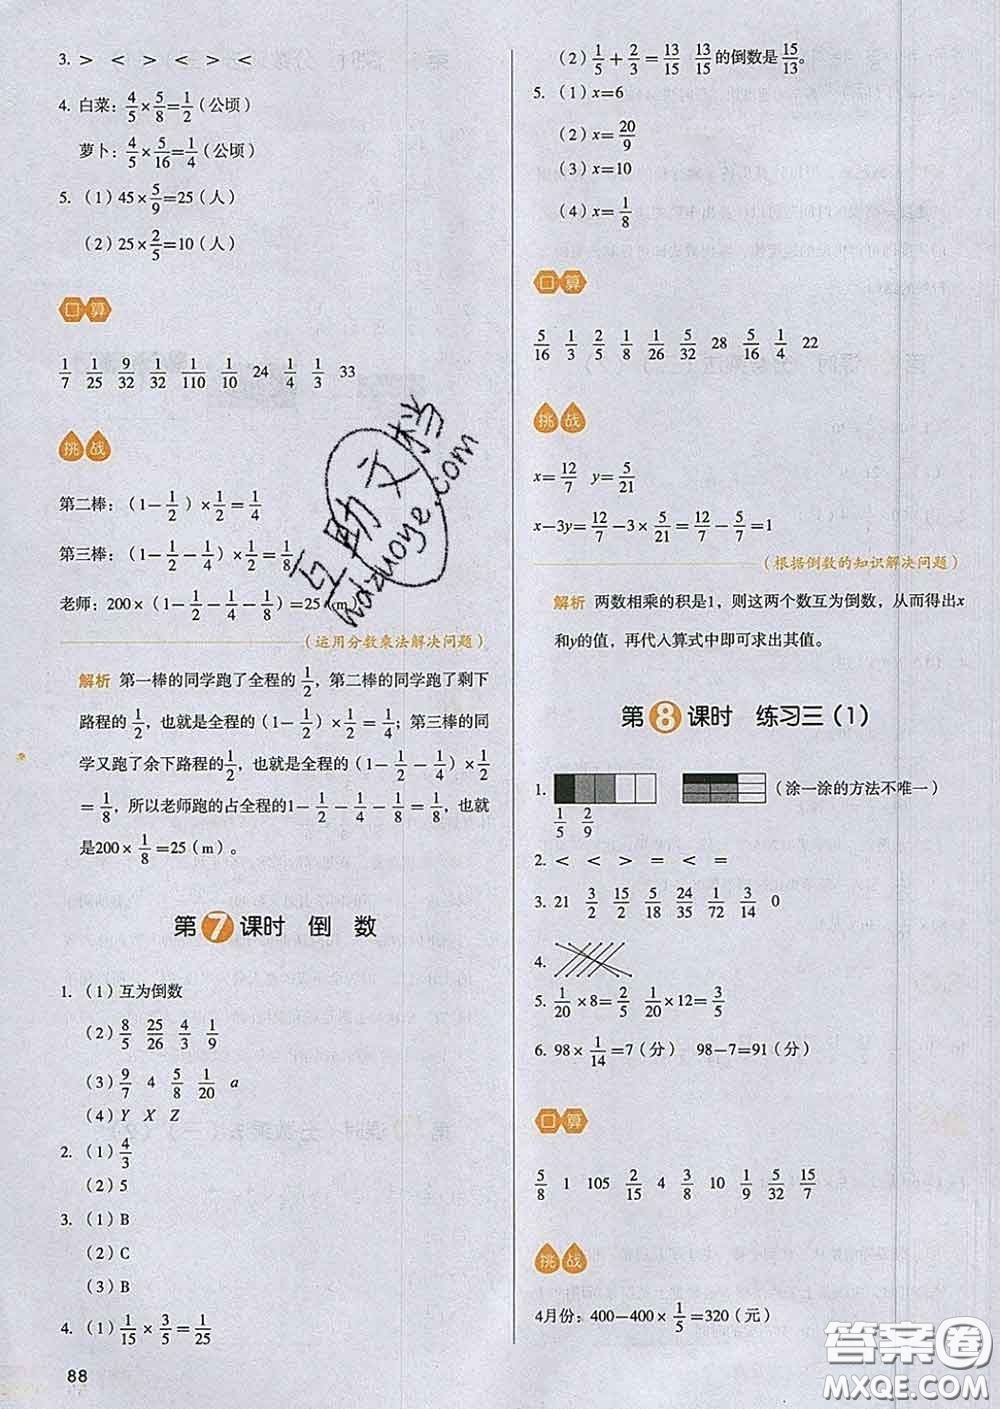 3. > < > < > <
4. 白菜：4/5×5/8=1/2（公顷）
萝卜：4/5×5/16=1/4（公顷）
5. （1）45×5/9=25（人）
（2）25×2/5=10（人）
口算
1/7 1/25 9/32 1/32 1/110 1/10 24 1/4 1/3 33
挑战
第二棒：（1−1/2）×1/2=1/4
第三棒：（1−1/2−1/4）×1/2=1/8
老师：200×（1−1/2−1/4−1/8）=25（m）
（运用分数乘法解决问题）
解析 第一棒的同学跑了全程的1/2，第二棒的同学跑了剩下
路程的1/2，也就是全程的（1−1/2）×1/2=1/4；第三棒的同
学又跑了余下路程的1/2，也就是全程的（1−1/2−1/4）×1/2
=1/8，所以老师跑的占全程的1−1/2−1/4−1/8=1/8，也就
是200×1/8=25（m）。
第7课时 倒 数
1. （1）互为倒数
（2）8/5 25/26 4/3 1/9
（3）9/7 4 5/8 1/20 a
（4）Y X Z
2. （1）4/3
（2）5
3. （1）B
（2）C
（3）B
4. （1）1/15×3/5=1/25
88
（2）1/5+2/3=13/15 13/15的倒数是15/13。
5. （1）x=6
（2）x=20/9
（3）x=10
（4）x=1/8
口算
5/16 1/3 2/5 1/8 1/26 5/32 28 5/16 1/4 22
挑战
x=12/7 y=5/21
x−3y=12/7−3×5/21=12/7−5/7=1
（根据倒数的知识解决问题）
解析 两数相乘的积是1，则这两个数互为倒数，从而得出x
和y的值，再代入算式中即可求出其值。
第8课时 练习三（1）
1. （涂一涂的方法不唯一）
1/5 2/9
2. < < > = < =
3. 21 3/2 15/2 5/18 24/35 1/72 3/14 0
4.
5. 1/20×8=2/5 1/20×12=3/5
6. 98×1/14=7（分） 98−7=91（分）
口算
5/8 1 105 2/15 4 3/8 10 1/9 5/32 15/7
挑战
4月份：400−400×1/5=320（元）
互助文档
hdzuoye.com
答案圈
MXQE.COM